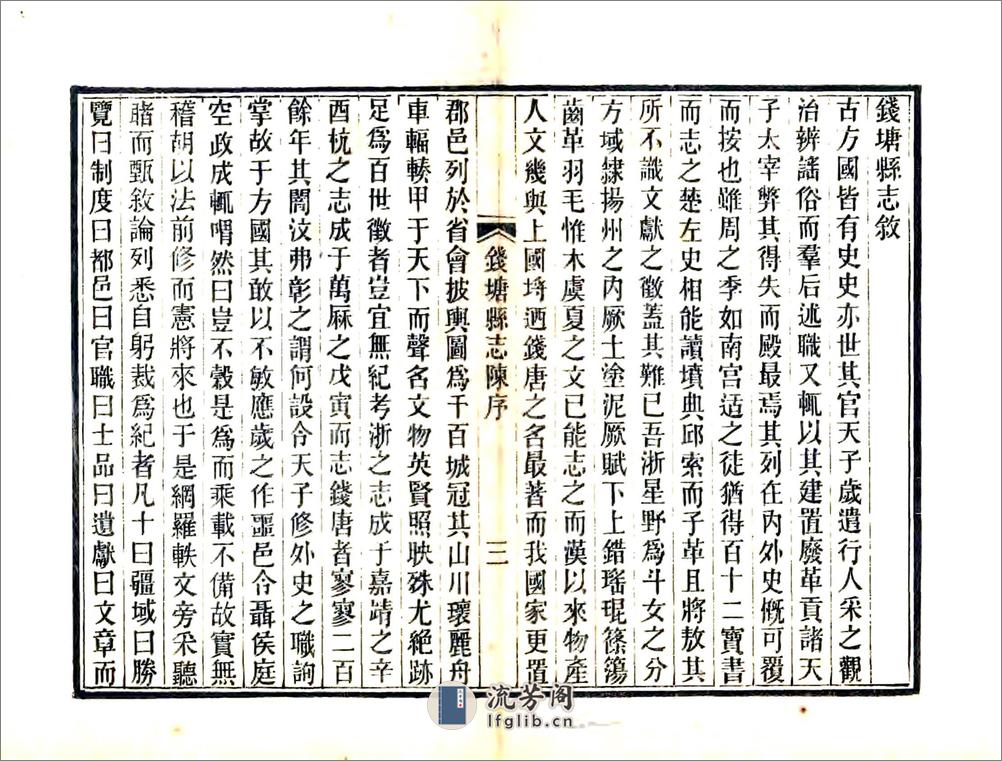 錢塘縣志敘
古方國皆有史史亦世其官天子歲遣行人采之觀
治辨謠俗而羣后述職又輒以其建置廢革貢諸天
子太宰弊其得失而殿最焉其列在內外史慨可覆
而按也雖周之季如南宮适之徒猶得百十二寶書
而志之楚左史相能讀墳典邱索而子革且將敖其
所不識文獻之徵蓋其難已吾浙星野爲斗女之分
方域隸揚州之內厥土塗泥厥賦下上錯瑤琨篠簜
齒革羽毛惟木虞夏之文已能志之而漢以來物產
人文幾與上國埒迺錢唐之名最著而我國家更置
錢塘縣志陳序 三
郡邑列於省會披輿圖爲千百城冠其山川瓌麗舟
車輻輳甲于天下而聲名文物英賢照映殊尤絕跡
足爲百世徵者豈宜無紀考浙之志成于嘉靖之辛
酉杭之志成于萬厤之戊寅而志錢唐者寥寥二百
餘年其闇汶弗彰之謂何設令天子修外史之職詢
掌故于方國其敢以不敏應歲之作噩邑令聶侯庭
空政成輒喟然曰豈不穀是爲而乘載不備故實無
稽胡以法前修而憲將來也于是網羅軼文旁釆聽
睹而甄敘論列悉自躬裁爲紀者凡十曰疆域曰勝
覽曰制度曰都邑曰官職曰士品曰遺獻曰文章而
流芳阁
lfglib.cn